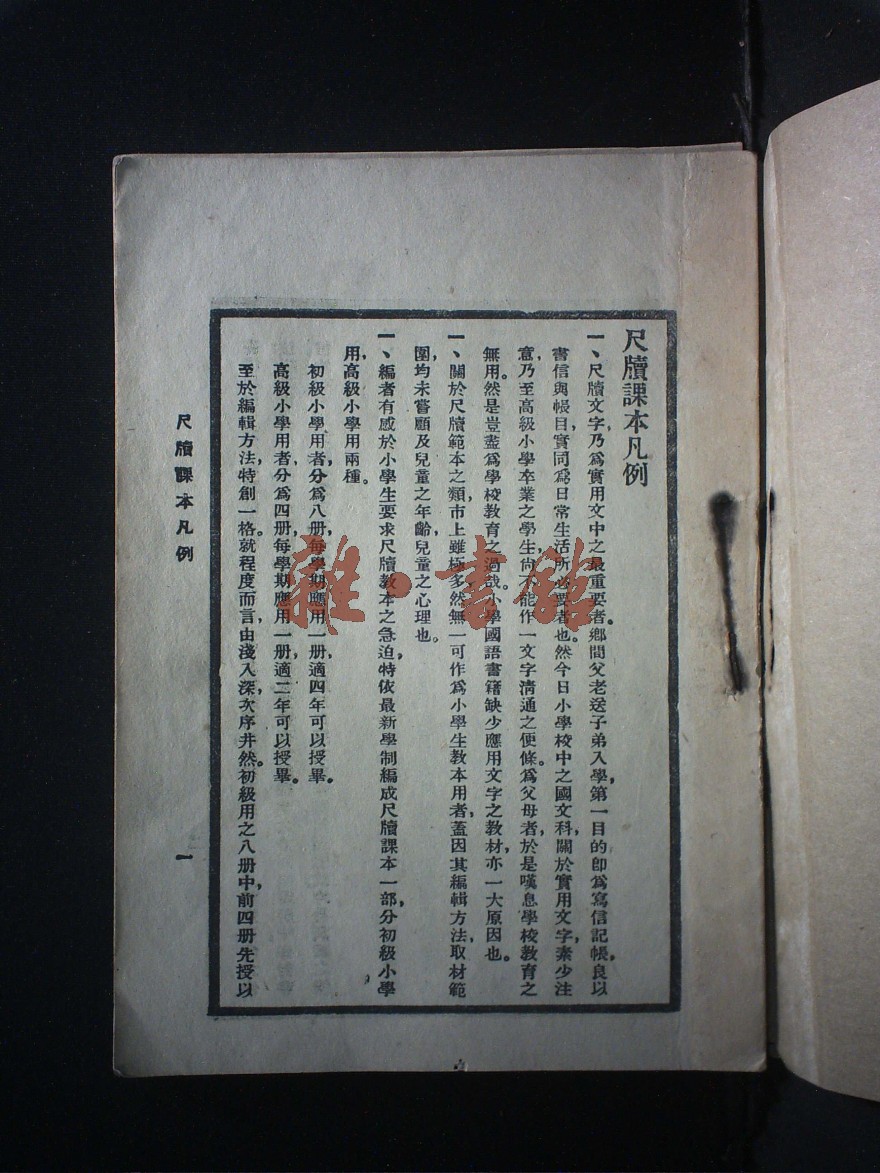 尺牘課本凡例
一、尺牘文字，乃爲實用文中之最重要者。鄉間父老送子弟入學，第一目的卽爲寫信記帳，良以
書信與帳目，實同爲日常生活所必要者也。然今日小學校中之國文科，關於實用文字，素少注
意，乃至高級小學卒業之學生，尙不能作一文字淸通之便條。爲父母者，於是嘆息學校教育之
無用。然是豈盡爲學校教育之過哉。小學國語書籍缺少應用文字之教材，亦一大原因也。
一、關於尺牘範本之類，市上雖極多，然無一可作爲小學生教本用者，蓋因其編輯方法，取材範
圍，均未嘗顧及兒童之年齡，兒童之心理也。
一、編者有感於小學生要求尺牘教本之急迫，特依最新學制編成尺牘課本一部，分初級小學
用，高級小學用兩種。
初級小學用者，分爲八册，每學期應用一册，適四年可以授畢。
高級小學用者，分爲四册，每學期應用一册，適二年可以授畢。
至於編輯方法，特創一格。就程度而言，由淺入深，次序井然。初級用之八册中，前四册先授以
尺牘課本凡例
一
雜·書館